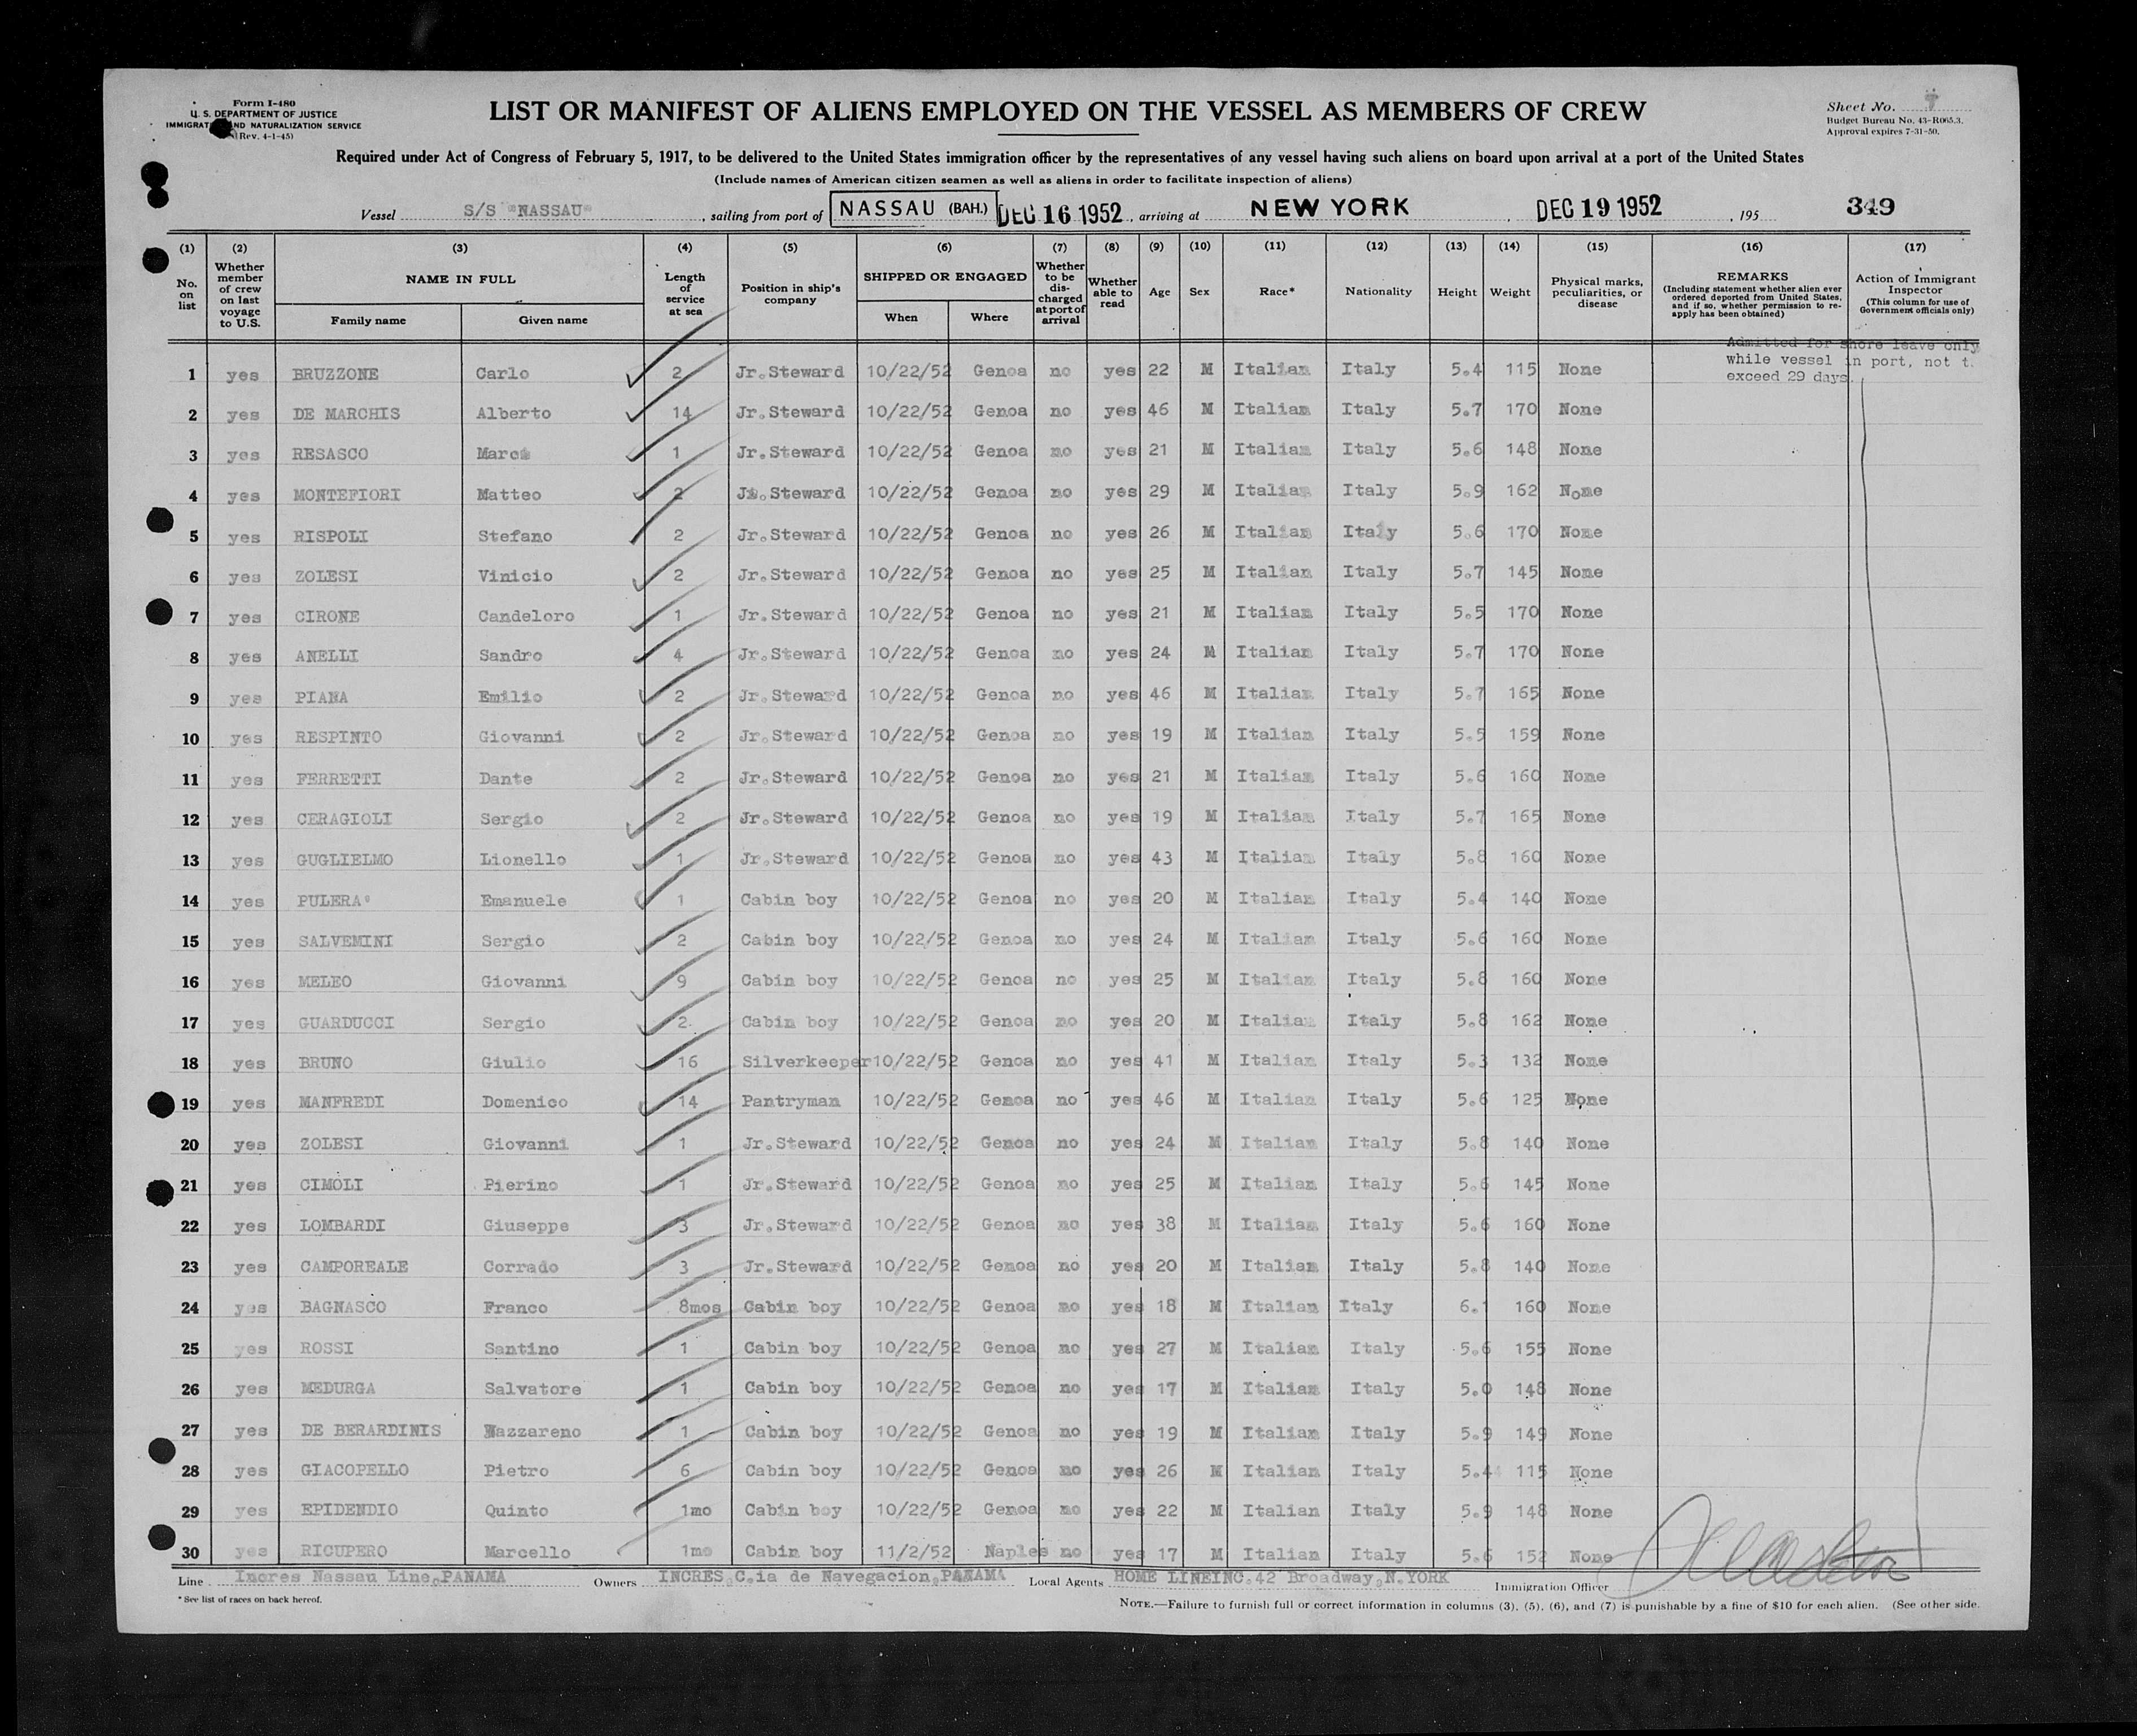 Form I-480
U. S. DEPARTMENT OF JUSTICE
IMMIGRATION AND NATURALIZATION SERVICE
(Rev. 4-1-45)
LIST OR MANIFEST OF ALIENS EMPLOYED ON THE VESSEL AS MEMBERS OF CREW
Sheet No.
Budget Bureau No. 43-R065.3.
Approval expires 7-31-50.
Required under Act of Congress of February 5, 1917, to be delivered to the United States immigration officer by the representatives of any vessel having such aliens on board upon arrival at a port of the United States
(Include names of American citizen seamen as well as aliens in order to facilitate inspection of aliens)
Vessel S/S "NASSAU" , sailing from port of NASSAU (BAH.) DEC 16 1952 , arriving at NEW YORK , DEC 19 1952 , 195 349
(1) (2) (3) (4) (5) (6) (7) (8) (9) (10) (11) (12) (13) (14) (15) (16) (17)
No. on list
Whether member of crew on last voyage to U.S.
NAME IN FULL
Family name
Given name
Length of service at sea
Position in ship's company
SHIPPED OR ENGAGED
When
Where
Whether to be discharged at port of arrival
Whether able to read
Age
Sex
Race*
Nationality
Height
Weight
Physical marks, peculiarities, or disease
REMARKS
(Including statement whether alien ever ordered deported from United States, and if so, whether permission to re-apply has been obtained)
Action of Immigrant Inspector
(This column for use of Government officials only)
Admitted for shore leave only
while vessel in port, not t.
exceed 29 days.
1 yes BRUZZONE Carlo 2 Jr.Steward 10/22/52 Genoa no yes 22 M Italian Italy 5.4 115 None
2 yes DE MARCHIS Alberto 14 Jr.Steward 10/22/52 Genoa no yes 46 M Italian Italy 5.7 170 None
3 yes RESASCO 1 Jr.Steward 10/22/52 Genoa no yes 21 M Italian Italy 5.6 148 None
4 yes MONTEFIORI Matteo 2 Jr.Steward 10/22/52 Genoa no yes 29 M Italian Italy 5.9 162 None
5 yes RISPOLI Stefano 2 Jr.Steward 10/22/52 Genoa no yes 26 M Italian Italy 5.6 170 None
6 yes ZOLESI Vinicio 2 Jr.Steward 10/22/52 Genoa no yes 25 M Italian Italy 5.7 145 None
7 yes CIRONE Candeloro 1 Jr.Steward 10/22/52 Genoa no yes 21 M Italian Italy 5.5 170 None
8 yes ANELLI Sandro 4 Jr.Steward 10/22/52 Genoa no yes 24 M Italian Italy 5.7 170 None
9 yes PIANA Emilio 2 Jr.Steward 10/22/52 Genoa no yes 46 M Italian Italy 5.7 165 None
10 yes RESPINTO Giovanni 2 Jr.Steward 10/22/52 Genoa no yes 19 M Italian Italy 5.5 159 None
11 yes FERRETTI Dante 2 Jr.Steward 10/22/52 Genoa no yes 21 M Italian Italy 5.6 160 None
12 yes CERAGIOLI Sergio 2 Jr.Steward 10/22/52 Genoa no yes 19 M Italian Italy 5.7 165 None
13 yes GUGLIELMO Lionello 1 Jr.Steward 10/22/52 Genoa no yes 43 M Italian Italy 5.8 160 None
14 yes PULERA' Emanuele 1 Cabin boy 10/22/52 Genoa no yes 20 M Italian Italy 5.4 140 None
15 yes SALVEMINI Sergio 2 Cabin boy 10/22/52 Genoa no yes 24 M Italian Italy 5.6 160 None
16 yes MELEO Giovanni 9 Cabin boy 10/22/52 Genoa no yes 25 M Italian Italy 5.8 160 None
17 yes GUARDUCCI Sergio 2 Cabin boy 10/22/52 Genoa no yes 20 M Italian Italy 5.8 162 None
18 yes BRUNO Giulio 16 Silverkeeper 10/22/52 Genoa no yes 41 M Italian Italy 5.3 132 None
19 yes MANFREDI Domenico 14 Pantryman 10/22/52 Genoa no yes 46 M Italian Italy 5.6 125 None
20 yes ZOLESI Giovanni 1 Jr.Steward 10/22/52 Genoa no yes 24 M Italian Italy 5.8 140 None
21 yes CIMOLI Pierino 1 Jr.Steward 10/22/52 Genoa no yes 25 M Italian Italy 5.6 145 None
22 yes LOMBARDI Giuseppe 3 Jr.Steward 10/22/52 Genoa no yes 38 M Italian Italy 5.6 160 None
23 yes CAMPOREALE Corrado 3 Jr.Steward 10/22/52 Genoa no yes 20 M Italian Italy 5.8 140 None
24 yes BAGNASCO Franco 8mos Cabin boy 10/22/52 Genoa no yes 18 M Italian Italy 6.1 160 None
25 yes ROSSI Santino 1 Cabin boy 10/22/52 Genoa no yes 27 M Italian Italy 5.6 155 None
26 yes MEDURGA Salvatore 1 Cabin boy 10/22/52 Genoa no yes 17 M Italian Italy 5.0 148 None
27 yes DE BERARDINIS Nazzareno 1 Cabin boy 10/22/52 Genoa no yes 19 M Italian Italy 5.9 149 None
28 yes GIACOPELLO Pietro 6 Cabin boy 10/22/52 Genoa no yes 26 M Italian Italy 5.4 115 None
29 yes EPIDENDIO Quinto 1mo Cabin boy 10/22/52 Genoa no yes 22 M Italian Italy 5.9 148 None
30 yes RICUPERO Marcello 1mo Cabin boy 11/2/52 Naples no yes 17 M Italian Italy 5.6 152 None
Line Incres Nassau Line,PANAMA Owners INCRES,C.ia de Navegacion,PANAMA Local Agents HOME LINEINC.42 Broadway,N.YORK Immigration Officer
*See list of races on back hereof.
NOTE.—Failure to furnish full or correct information in columns (3), (5), (6), and (7) is punishable by a fine of $10 for each alien. (See other side.